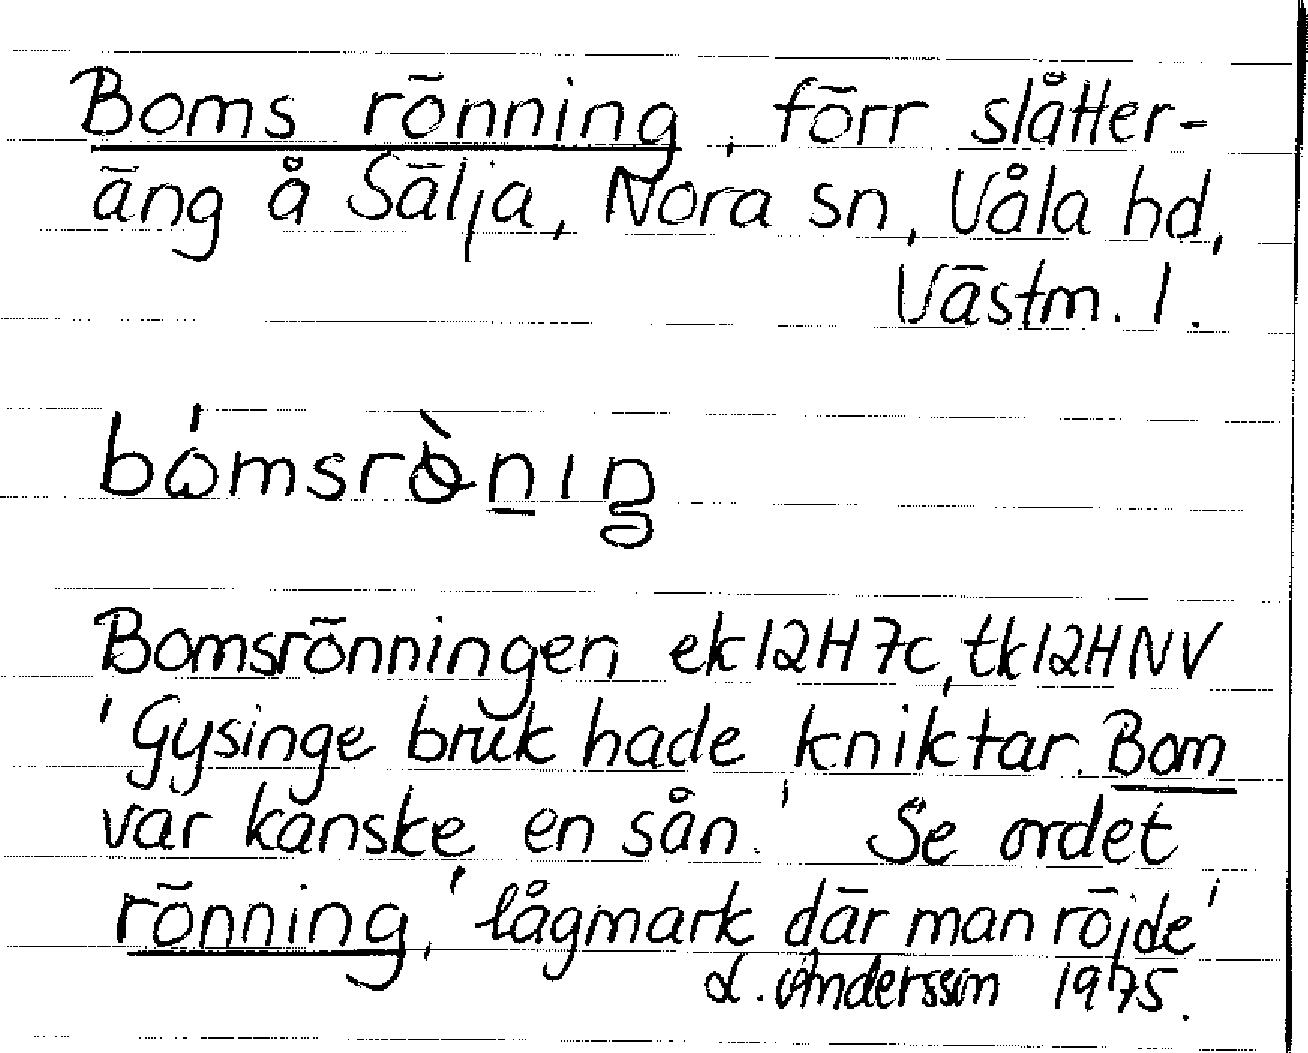 Boms rönning, förr slåtter-
äng å Sälja, Nora sn, Våla hd,
Västm. l.
bómsrö̀nıŋ
Bomsrönningen, ek 12H 7c, tk 12H NV
'Gysinge bruk hade kniktar. Bom
var kanske en sån.' Se ordet
rönning, 'lågmark där man röjde'
L. Andersson 1975.